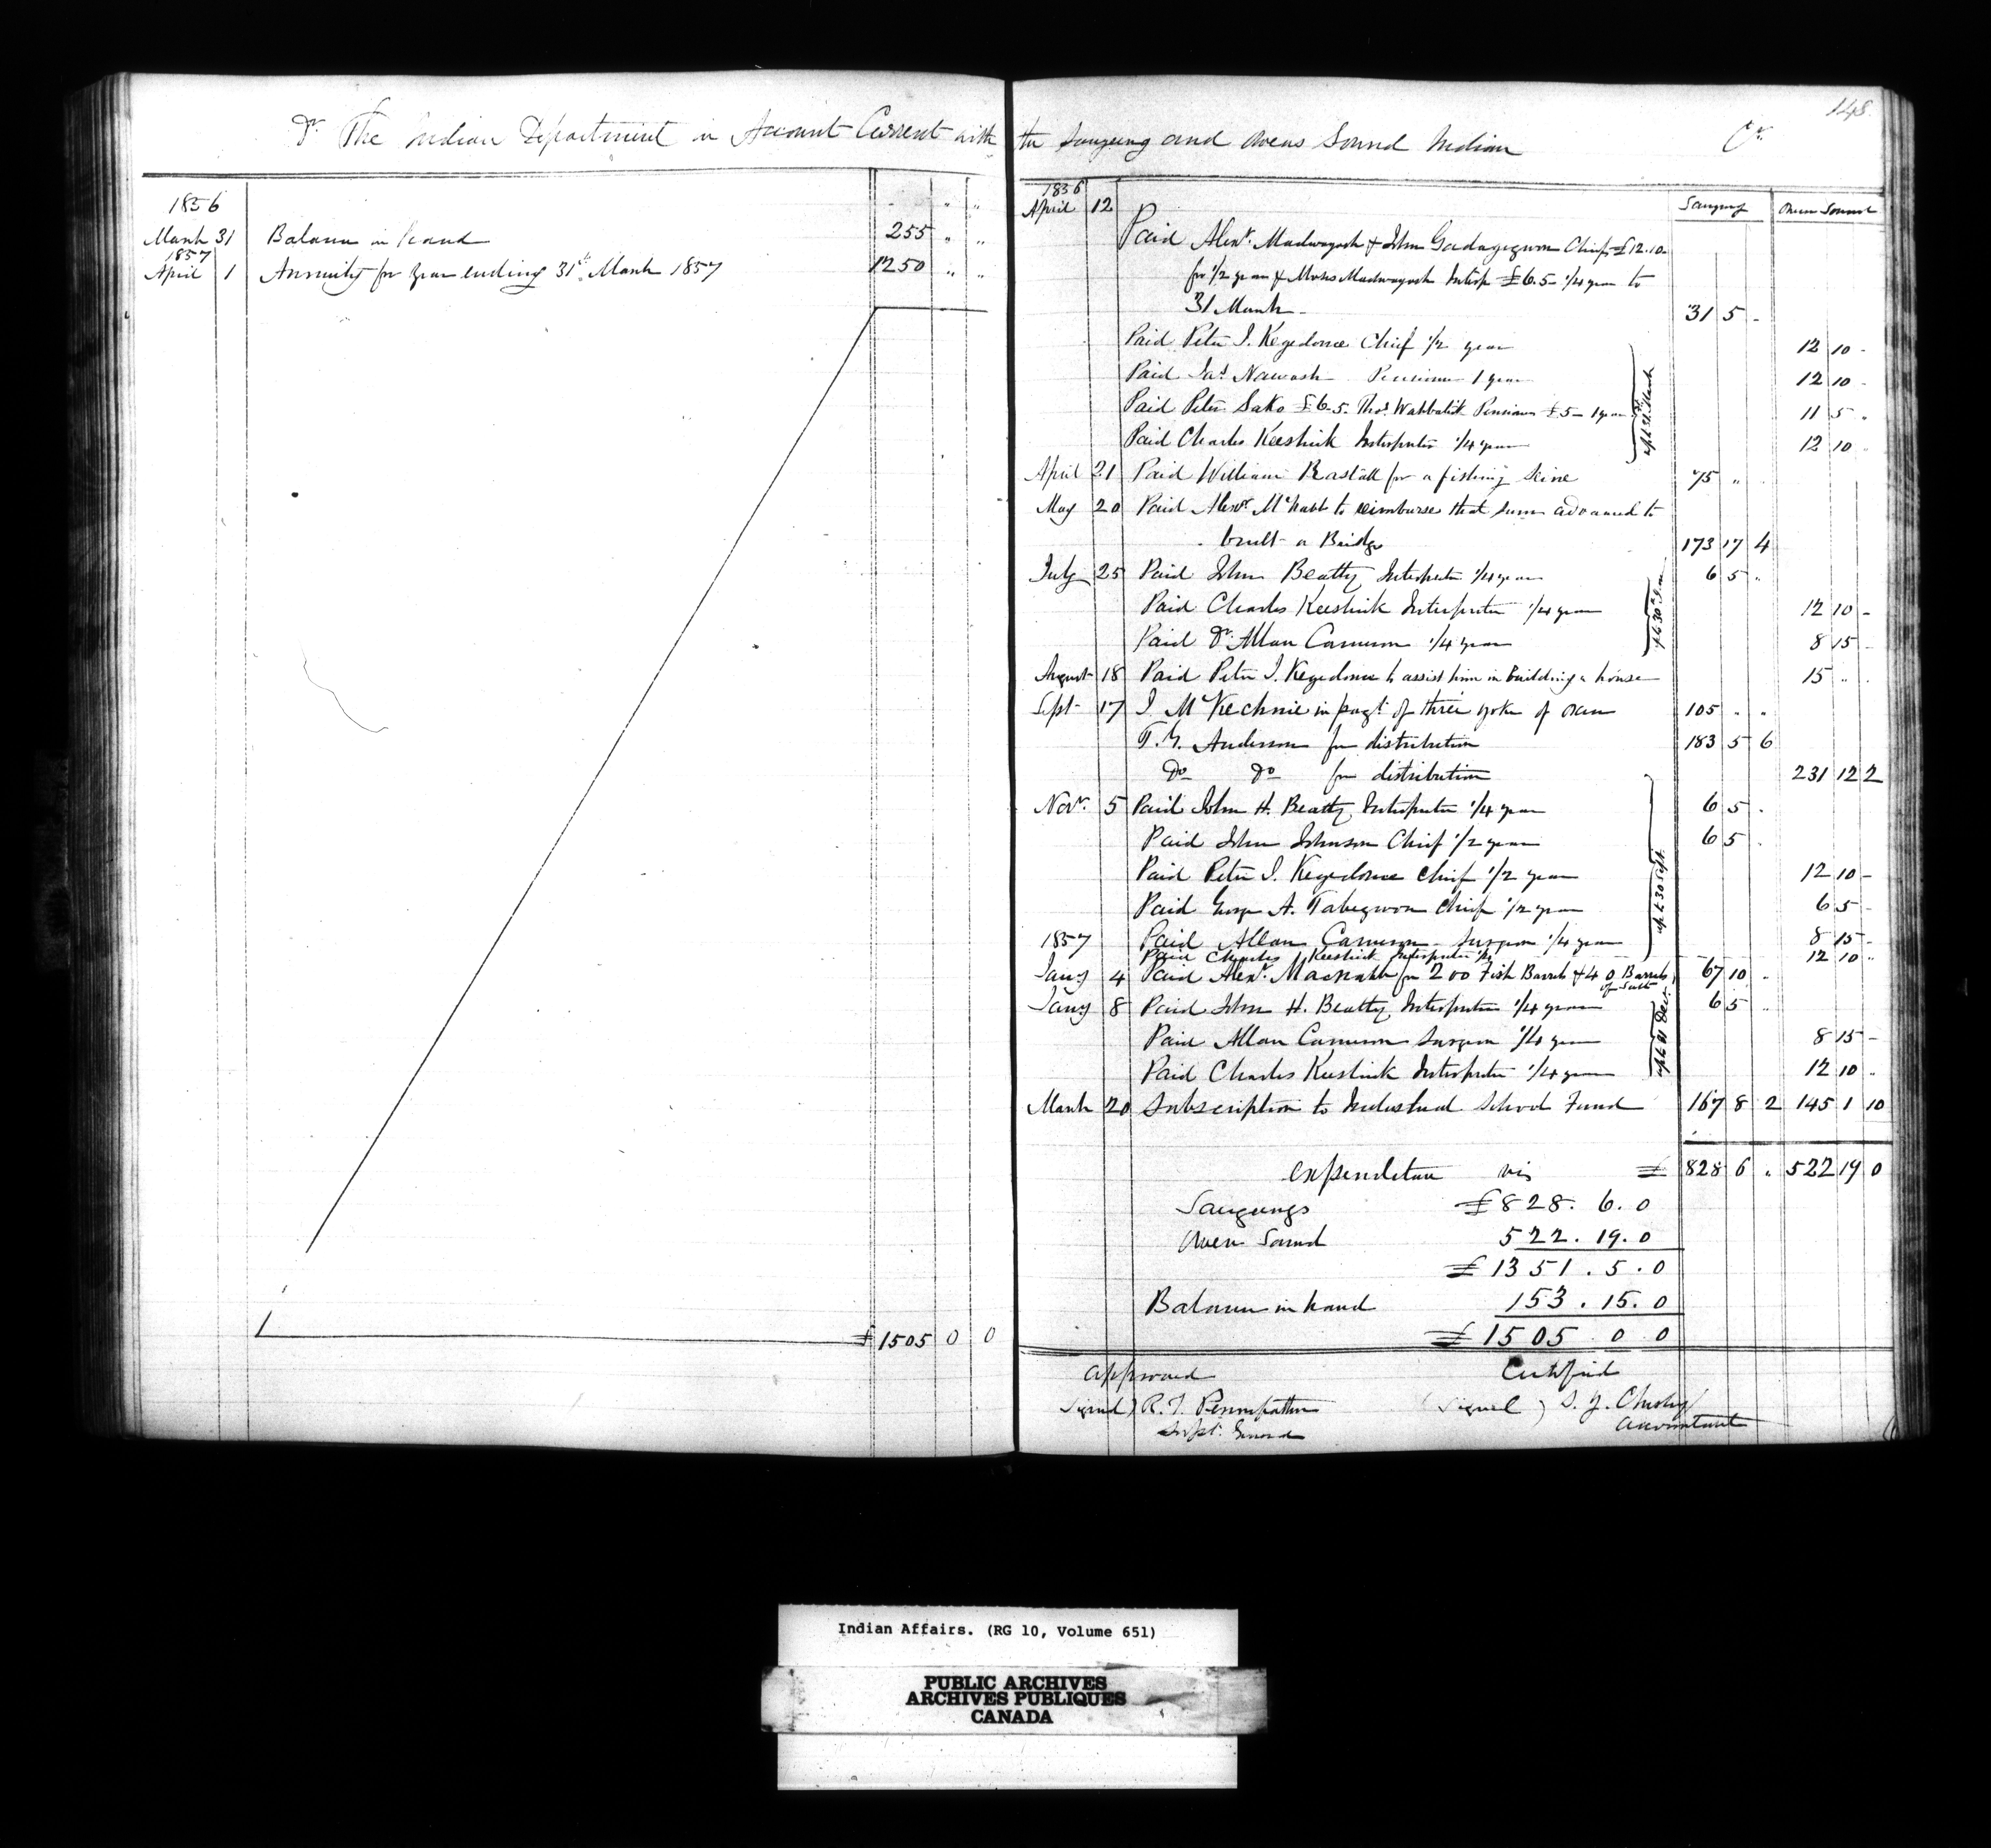 148
Dr The Indian Department in Account Current with the Saugeeng and Owens Sound Indian Cr.
1856
March 31 Balance in hand 255 " "
1857
April 1 Annuity for Year ending 31st March 1857 1250 " "
£ 1505 0 0
Saugeeng Owen Sound
1856
April 12 Paid Alexr. Madwayosh & John Gadagegwon Chiefs £12.10-
for 1/2 year & Moses Madwayosh Interp £6.5- 1/4 year to
31 March - 31 5 -
Paid Peter J. Kegedonce Chief 1/2 year 12 10 -
Paid Jas. Nawash Pensioner 1 year 12 10 -
Paid Peter Sako £6-5. Thos. Wahbatik Pensions £5- 1 year 11 5 "
Paid Charles Keeshick Interpreter 1/4 year 12 10 "
up to 31st March
April 21 Paid William Rastall for a fishing Seine 75 "
May 20 Paid Alexr. McNabb to reimburse that sum advanced to
built a Bridge 173 17 4
July 25 Paid John Beatty Interpreter 1/4 year 6 5 "
Paid Charles Keeshick Interpreter 1/4 year 12 10 -
Paid Dr. Allan Cameron 1/4 year 8 15 -
up to 30th June
August 18 Paid Peter J. Kegedonce to assist him in building a house 15 " "
Sept 17 J. McKechnie in payt. of three yoke of oxen 105 " "
T. G. Anderson for distribution 183 5 6
Do Do for distribution 231 12 2
Novr. 5 Paid John H. Beatty Interpreter 1/4 year 6 5 -
Paid John Johnson Chief 1/2 year 6 5 -
Paid Peter J. Kegedonce Chief 1/2 year 12 10 -
Paid George A. Tabegwon Chief 1/2 year 6 5 -
up to 30 Sept.
1857 Paid Allan Cameron Surgeon 1/4 year 8 15 -
Paid Charles Keeshick Interpreter 1/4 12 10 "
Jany 4 Paid Alexr. Macnabb for 200 Fish Barrels & 40 Barrels
of Salt 67 10 "
Jany 8 Paid John H. Beatty Interpreter 1/4 year 6 5 "
Paid Allan Cameron Surgeon 1/4 year 8 15 -
Paid Charles Keeshick Interpreter 1/4 year 12 10 "
up to 31 Dec.
March 20 Subscription to Industrial School Fund 167 8 2 145 1 10
expenditure viz £ 828 6 " 522 19 0
Saugeengs £828. 6. 0
Owen Sound 522. 19. 0
£1351. 5. 0
Balance in hand 153. 15. 0
£1505 0. 0
approved Certified
Signed) R. T. Pennefather (Signed) S. Y. Chesley
Supt. General Accountant
Indian Affairs. (RG 10, Volume 651)
PUBLIC ARCHIVES
ARCHIVES PUBLIQUES
CANADA